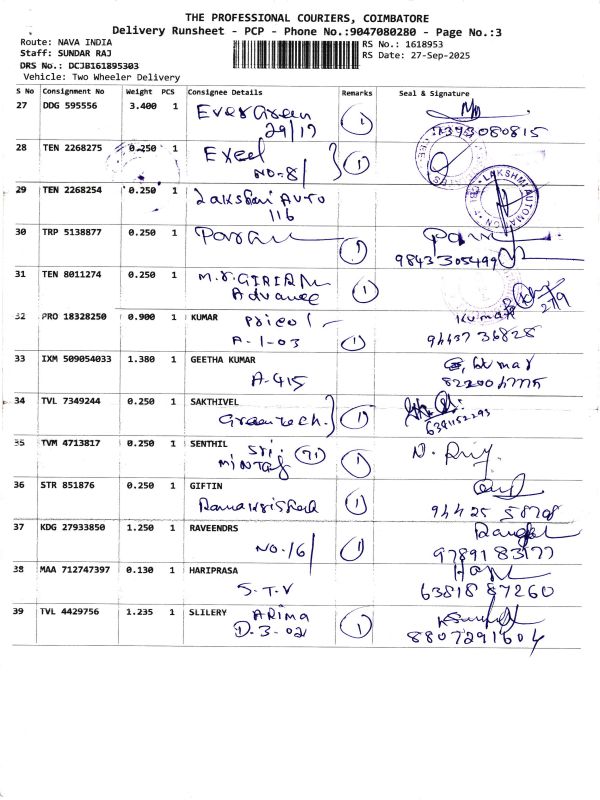 THE PROFESSIONAL COURIERS, COIMBATORE
Delivery Runsheet - PCP - Phone No.:9047080280 - Page No.:3
Route: NAVA INDIA
RS No.: 1618953
Staff: SUNDAR RAJ
RS Date: 27-Sep-2025
DRS No.: DCJB161895303
Vehicle: Two Wheeler Delivery
S No Consignment No Weight PCS Consignee Details Remarks Seal & Signature
27 DDG 595556 3.400 1 EverGreen 1
29/17
28 TEN 2268275 0.250 1 Excel 1
NO-8/
29 TEN 2268254 0.250 1 Lakshmi AUTO
116
LAKSHMI AUTOMATION
30 TRP 5138877 0.250 1 1
98433 05499
31 TEN 8011274 0.250 1 1
Advance
27/9
32 PRO 18328250 0.900 1 KUMAR Pricol 1 Kumar
A-1-03 94437 36828
33 IXM 509054033 1.380 1 GEETHA KUMAR
A-415
34 TVL 7349244 0.250 1 SAKTHIVEL 1
Greentech 6381152293
35 TVM 4713817 0.250 1 SENTHIL Sri. 71 1
36 STR 851876 0.250 1 GIFTIN 1
37 KDG 27933850 1.250 1 RAVEENDRS 1
NO.16/ 97891 83177
38 MAA 712747397 0.130 1 HARIPRASA
S.T.V 63818 87260
39 TVL 4429756 1.235 1 SLILERY ARIMA 1
D-3-02 8807291604